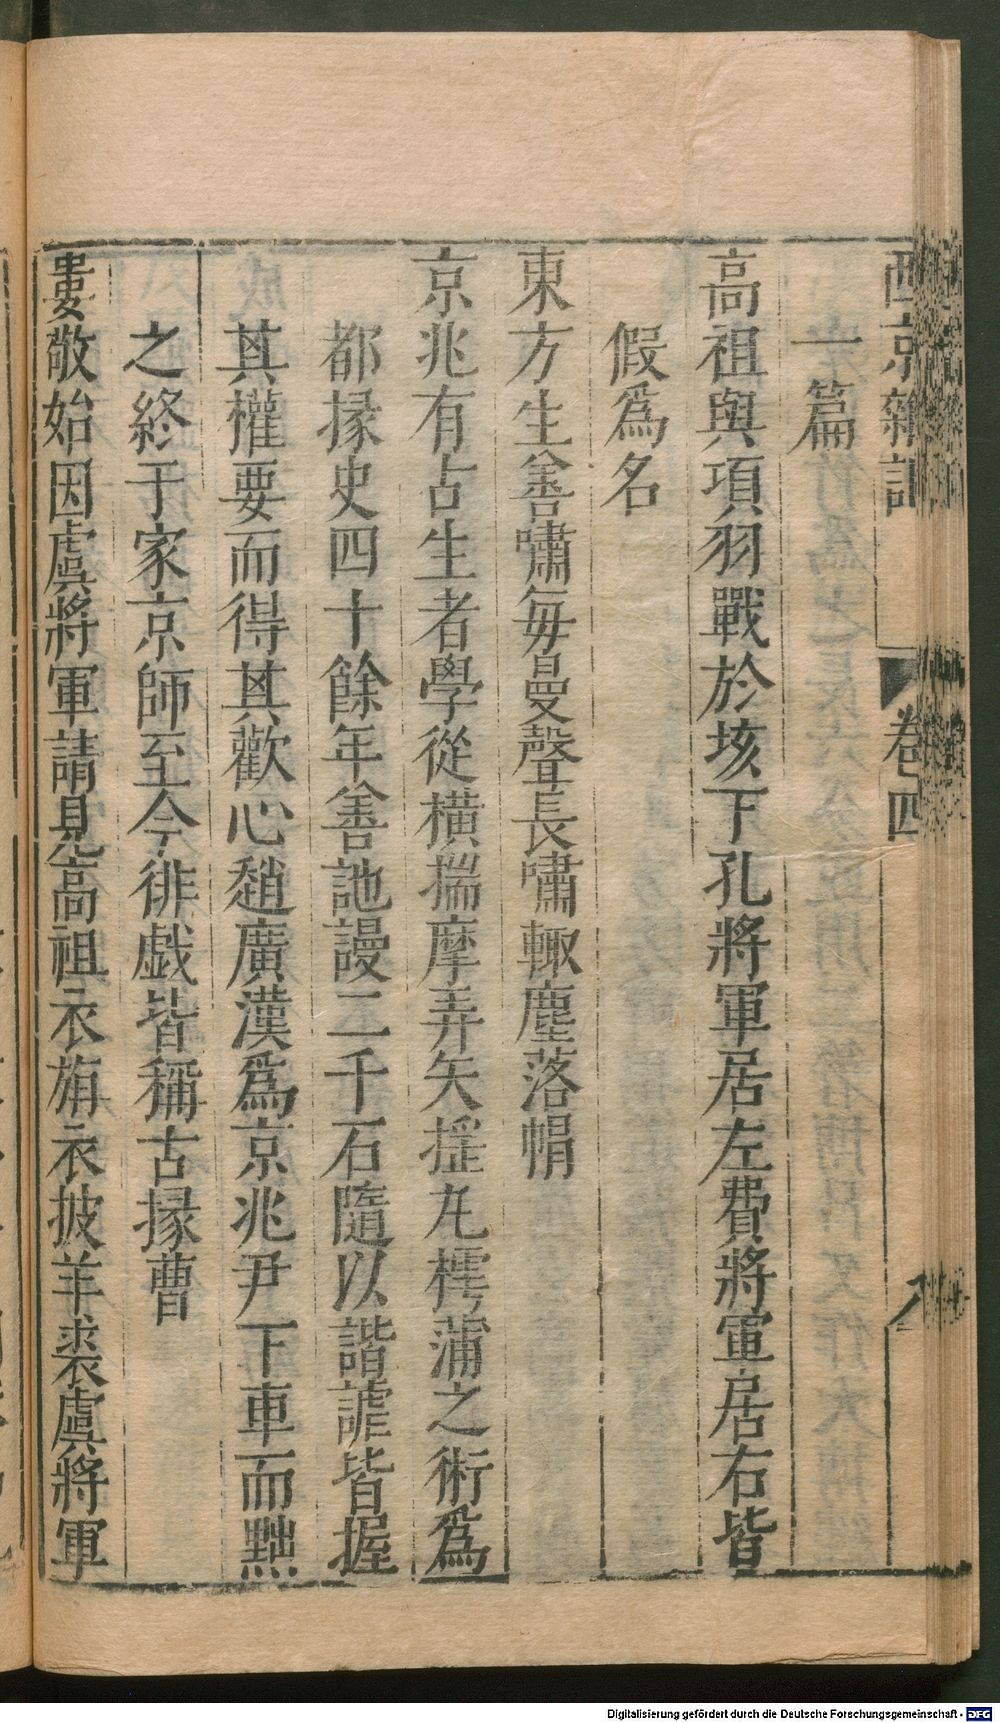 西京雜記 卷四 八
一篇
高祖與項羽戰於垓下孔將軍居左費將軍居右皆
假爲名
東方生善嘯每曼聲長嘯輙塵落帽
京兆有古生者學從橫揣摩弄矢揺丸樗蒲之術爲
都掾史四十餘年善訑謾二千石隨以諧謔皆握
其權要而得其歡心趙廣漢爲京兆尹下車而黜
之終于家京師至今俳戲皆稱古掾曹
婁敬始因虞將軍請見高祖衣旃衣披羊裘虞將軍
Digitalisierung gefördert durch die Deutsche Forschungsgemeinschaft - DFG